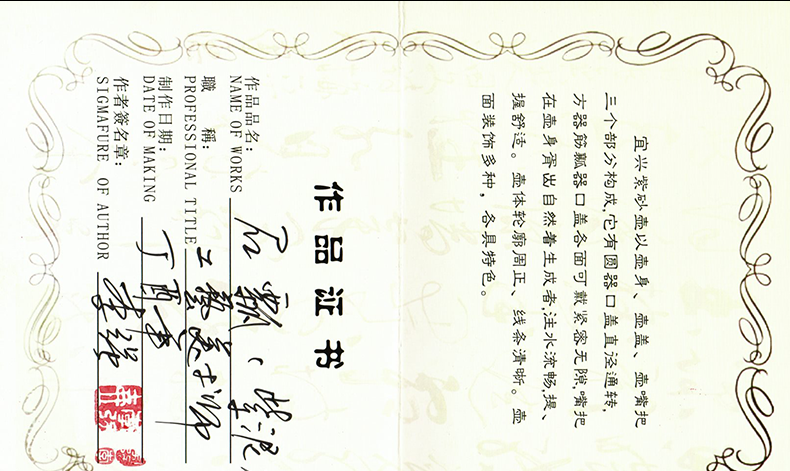 宜兴紫砂壶以壶身、壶盖、壶嘴把
三个部分构成,它有圆器口盖直泾通转,
方器筋瓤器口盖各面可戴紧密无隙,嘴把
在壶身胥出自然着生成者,注水流畅,提、
握舒适。壶体轮廓周正、线条清晰。壶
面装饰多种,各具特色。
作品证书
作品品名:
NAME OF WORKS 石瓢、紫泥
職 稱: 工艺美术师
PROFESSIONAL TITLE
制作日期:
DATE OF MAKING 丁酉年
作者簽名章:
SIGMAFURE OF AUTHOR